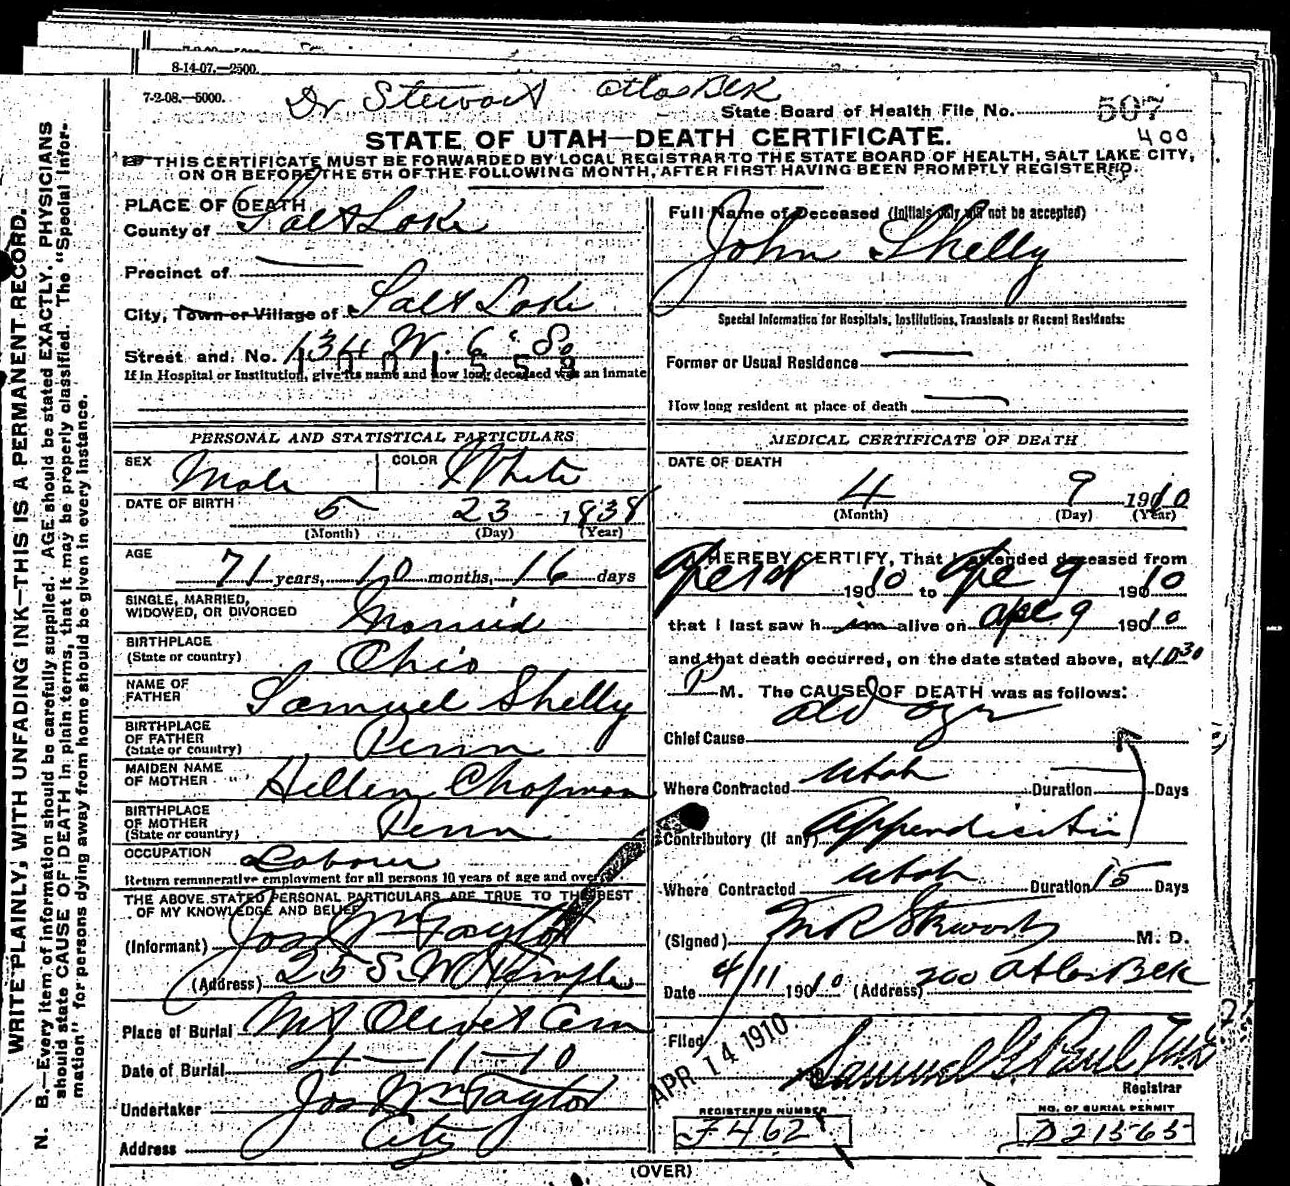 8-14-07.—2500.
7-2-08.—5000.
Dr Stewart Atlas Blk
State Board of Health File No. 507
400
STATE OF UTAH—DEATH CERTIFICATE.
THIS CERTIFICATE MUST BE FORWARDED BY LOCAL REGISTRAR TO THE STATE BOARD OF HEALTH, SALT LAKE CITY,
ON OR BEFORE THE 5TH OF THE FOLLOWING MONTH, AFTER FIRST HAVING BEEN PROMPTLY REGISTERED.
WRITE PLAINLY, WITH UNFADING INK—THIS IS A PERMANENT RECORD.
N. B.—Every item of information should be carefully supplied. AGE should be stated EXACTLY. PHYSICIANS
should state CAUSE OF DEATH in plain terms, that it may be properly classified. The "Special Infor-
mation" for persons dying away from home should be given in every instance.
PLACE OF DEATH
County of Salt Lake
Precinct of —
City, Town or Village of Salt Lake
Street and No. 134 W. 6 So
1001559
If in Hospital or Institution, give its name and how long deceased was an inmate
PERSONAL AND STATISTICAL PARTICULARS
SEX Male COLOR White
DATE OF BIRTH 5 23 1838
(Month) (Day) (Year)
AGE
71 years, 10 months, 16 days
SINGLE, MARRIED,
WIDOWED, OR DIVORCED Married
BIRTHPLACE
(State or country) Ohio
NAME OF
FATHER Samuel Shelly
BIRTHPLACE
OF FATHER
(State or country) Penn
MAIDEN NAME
OF MOTHER Hellen Chapman
BIRTHPLACE
OF MOTHER
(State or country) Penn
OCCUPATION Laborer
Return remunerative employment for all persons 10 years of age and over
THE ABOVE STATED PERSONAL PARTICULARS ARE TRUE TO THE BEST
OF MY KNOWLEDGE AND BELIEF
(Informant) Jos Wm Taylor
(Address) 25 S. W Temple
Place of Burial Mt Olivet Cem
Date of Burial 4-11-10
Undertaker Jos Wm Taylor
Address City
Full Name of Deceased (Initials only will not be accepted)
John Shelly
Special Information for Hospitals, Institutions, Transients or Recent Residents:
Former or Usual Residence —
How long resident at place of death —
MEDICAL CERTIFICATE OF DEATH
DATE OF DEATH
4 9 1910
(Month) (Day) (Year)
I HEREBY CERTIFY, That I attended deceased from
1910 to Apr 9 1910
that I last saw him alive on Apr 9 1910
and that death occurred, on the date stated above, at 10 30
P M. The CAUSE OF DEATH was as follows:
Chief Cause Old age
Where Contracted Utah Duration — Days
Contributory (if any) Appendicitis
Where Contracted Utah Duration 15 Days
(Signed) M. D.
Date 4/11 1910 (Address) 200 Atlas Blk
Filed APR 14 1910 Samuel G Paul
Registrar
REGISTERED NUMBER
F462
NO. OF BURIAL PERMIT
D21565
(OVER)